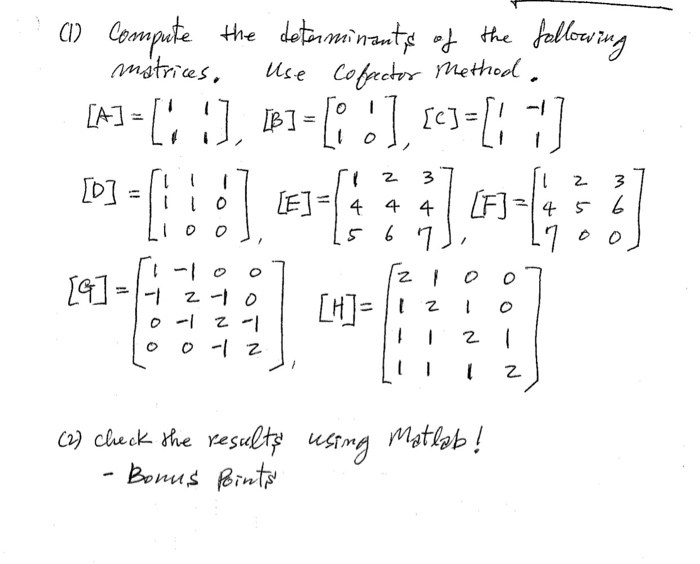 (1) Compute the determinants of the following
matrices. Use Cofactor Method.
[A] = [1 1; 1 1], [B] = [0 1; 1 0], [C] = [1 -1; 1 1]
[D] = [1 1 1; 1 1 0; 1 0 0], [E] = [1 2 3; 4 4 4; 5 6 7], [F] = [1 2 3; 4 5 6; 7 0 0]
[G] = [1 -1 0 0; -1 2 -1 0; 0 -1 2 -1; 0 0 -1 2], [H] = [2 1 0 0; 1 2 1 0; 1 1 2 1; 1 1 1 2]
(2) check the results using Matlab!
- Bonus Points